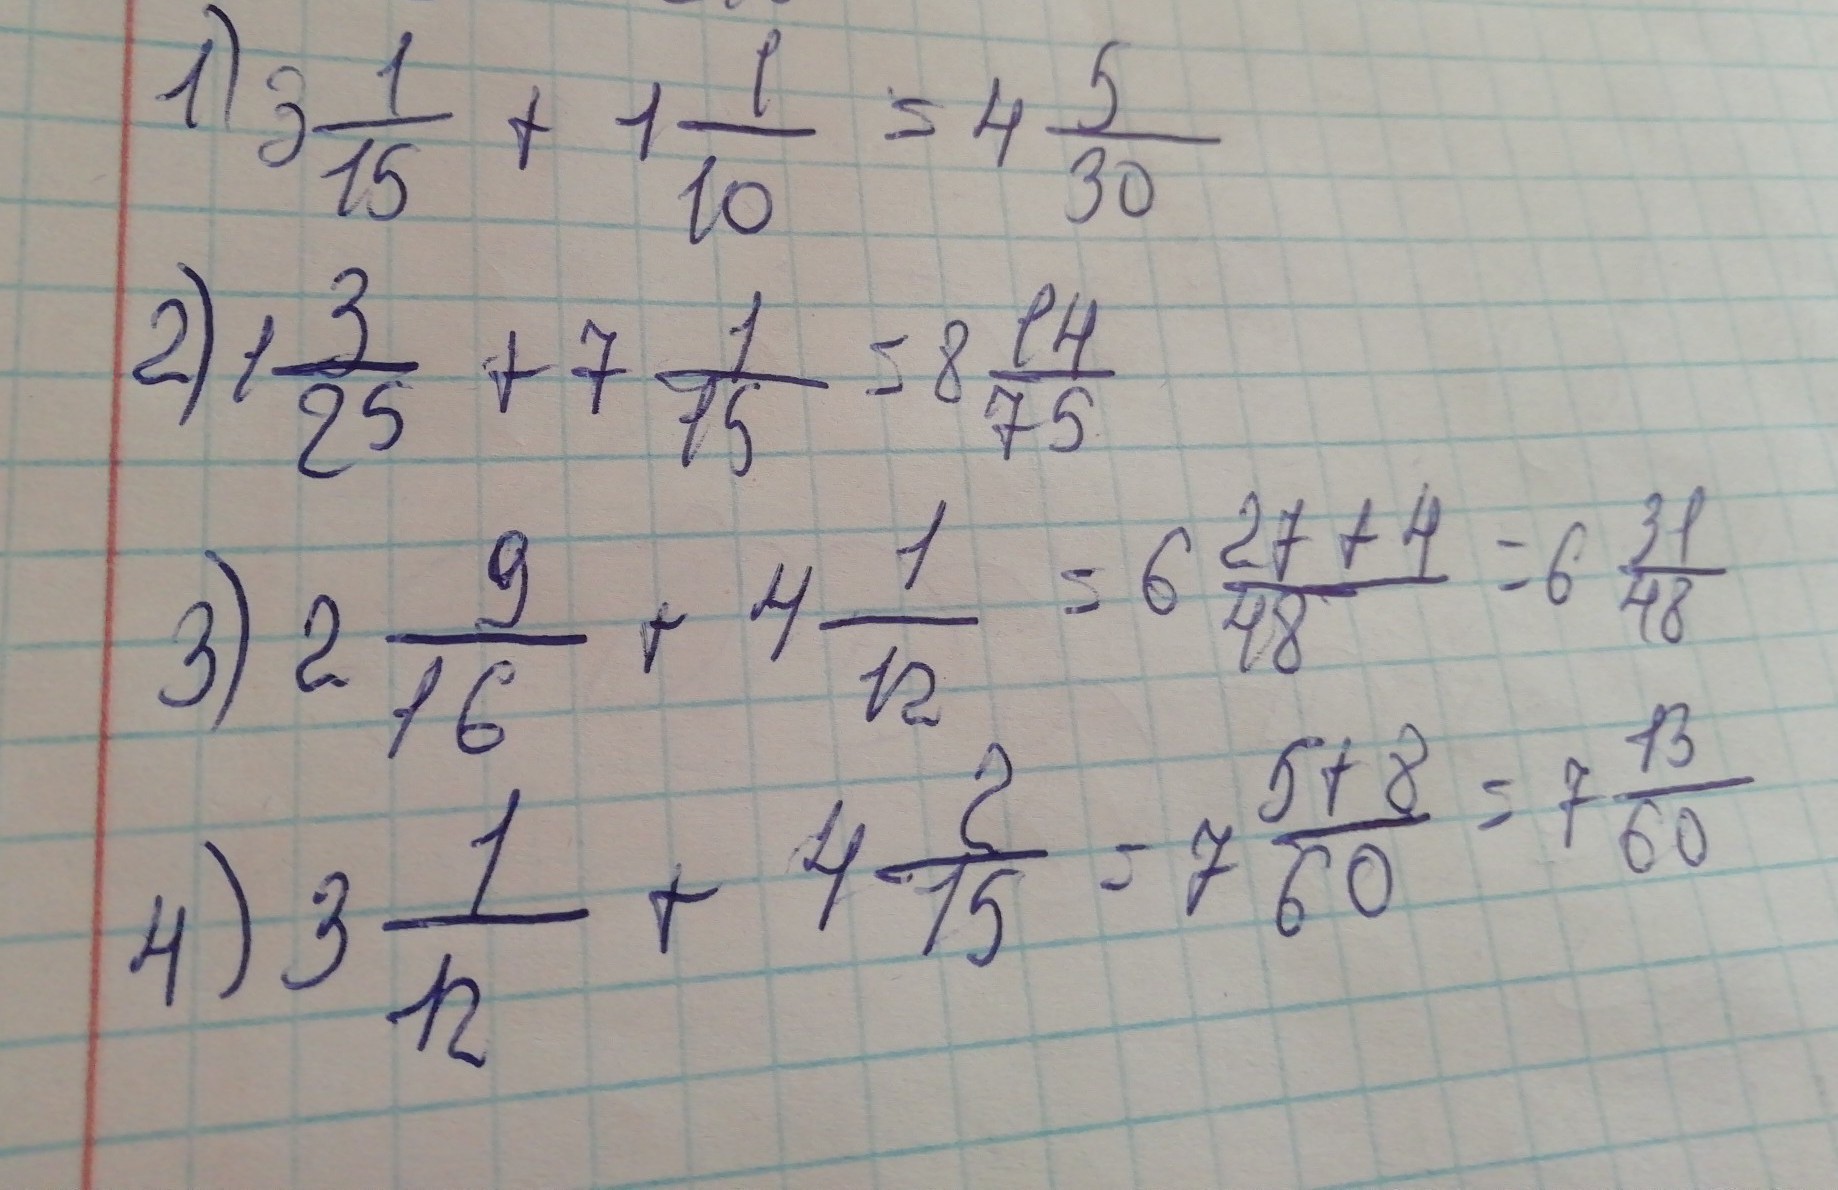 1) 3 1/15 + 1 1/10 = 4 5/30
2) 1 3/25 + 7 1/75 = 8 14/75
3) 2 9/16 + 4 1/12 = 6 27+4/48 = 6 31/48
4) 3 1/12 + 4 2/15 = 7 5+8/60 = 7 13/60